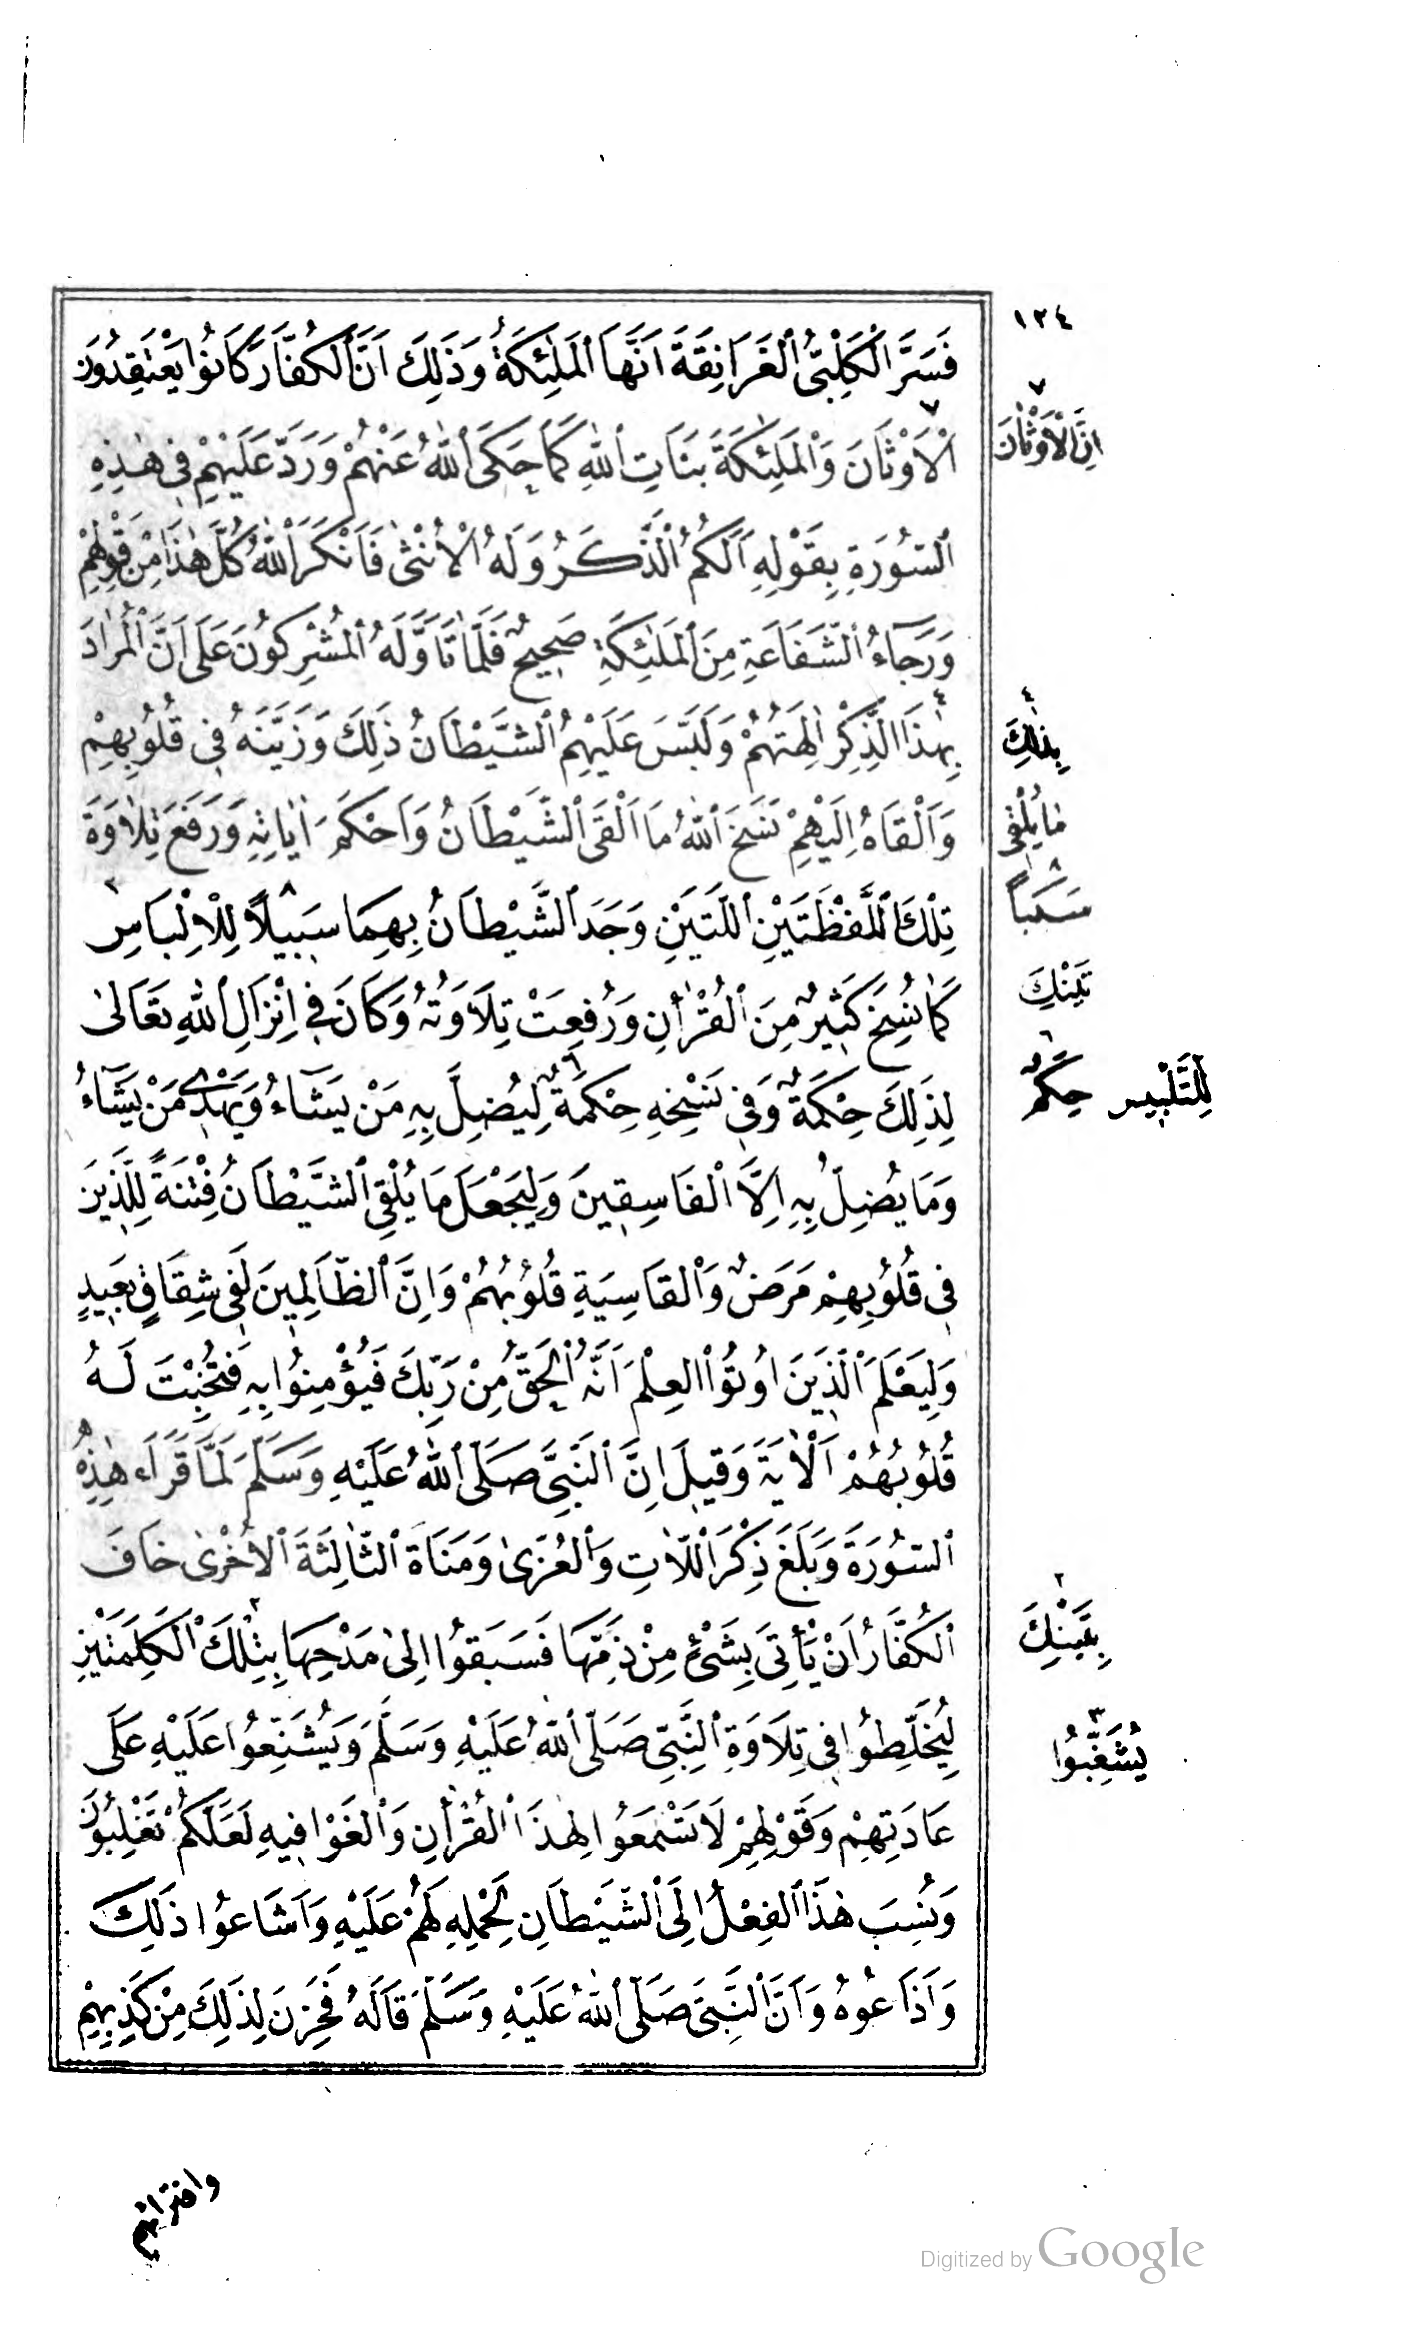 ١٢٤
فَسَّرَ الْكَلْبِيُّ الْغَرَانِقَةَ اَنَّهَا الْمَلٰئِكَةُ وَذَلِكَ اَنَّ الْكُفَّارَ كَانُوا يَعْتَقِدُونَ
الْاَوْثَانَ وَالْمَلٰئِكَةَ بَنَاتِ اللّٰهِ كَمَا حَكَى اللّٰهُ عَنْهُمْ وَرَدَّ عَلَيْهِمْ فِى هٰذِهِ
السُّورَةِ بِقَوْلِهِ اَلَكُمُ الذَّكَرُ وَلَهُ الْاُنْثٰى فَاَنْكَرَ اللّٰهُ كُلَّ هٰذَا مِنْ قَوْلِهِمْ
وَرَجَاءُ الشَّفَاعَةِ مِنَ الْمَلٰئِكَةِ صَحِيحٌ فَلَمَّا تَاَوَّلَهُ الْمُشْرِكُونَ عَلَى اَنَّ الْمُرَادَ
بِهٰذَا الذِّكْرِ اٰلِهَتُهُمْ وَلَبَّسَ عَلَيْهِمُ الشَّيْطَانُ ذٰلِكَ وَزَيَّنَهُ فِى قُلُوبِهِمْ
وَاَلْقَاهُ اِلَيْهِمْ نَسَخَ اللّٰهُ مَا اَلْقَى الشَّيْطَانُ وَاَحْكَمَ اٰيَاتِهِ وَرَفَعَ تِلَاوَةَ
تِلْكَ اللَّفْظَتَيْنِ اللَّتَيْنِ وَجَدَ الشَّيْطَانُ بِهِمَا سَبِيلًا لِلْاِلْبَاسِ
كَمَا نُسِخَ كَثِيرٌ مِنَ الْقُرْاٰنِ وَرُفِعَتْ تِلَاوَتُهُ وَكَانَ فِى اِنْزَالِ اللّٰهِ تَعَالٰى
لِذٰلِكَ حِكْمَةٌ وَفِى نَسْخِهِ حِكْمَةٌ لِيُضِلَّ بِهِ مَنْ يَشَاءُ وَيَهْدِىَ مَنْ يَشَاءُ
وَمَا يُضِلُّ بِهِ اِلَّا الْفَاسِقِينَ وَلِيَجْعَلَ مَا يُلْقِى الشَّيْطَانُ فِتْنَةً لِلَّذِينَ
فِى قُلُوبِهِمْ مَرَضٌ وَالْقَاسِيَةِ قُلُوبُهُمْ وَاِنَّ الظَّالِمِينَ لَفِى شِقَاقٍ بَعِيدٍ
وَلِيَعْلَمَ الَّذِينَ اُوتُوا الْعِلْمَ اَنَّهُ الْحَقُّ مِنْ رَبِّكَ فَيُؤْمِنُوا بِهِ فَتُخْبِتَ لَهُ
قُلُوبُهُمْ اَلْاٰيَةَ وَقِيلَ اِنَّ النَّبِىَّ صَلَّى اللّٰهُ عَلَيْهِ وَسَلَّمَ لَمَّا قَرَاَء هٰذِهِ
السُّورَةَ وَبَلَغَ ذِكْرَ اللَّاتِ وَالْعُزّٰى وَمَنَاةَ الثَّالِثَةَ الْاُخْرٰى خَافَ
الْكُفَّارُ اَنْ يَأْتِىَ بِشَىْءٍ مِنْ ذَمِّهَا فَسَبَقُوا اِلٰى مَدْحِهَا بِتِلْكَ الْكَلِمَتَيْنِ
لِيُخَلِّطُوا فِى تِلَاوَةِ النَّبِىِّ صَلَّى اللّٰهُ عَلَيْهِ وَسَلَّمَ وَيُشَنِّعُوا عَلَيْهِ عَلَى
عَادَتِهِمْ وَقَوْلِهِمْ لَا تَسْمَعُوا لِهٰذَا الْقُرْاٰنِ وَالْغَوْا فِيهِ لَعَلَّكُمْ تَغْلِبُونَ
وَنُسِبَ هٰذَا الْفِعْلُ اِلَى الشَّيْطَانِ لِحَمْلِهِ لَهُمْ عَلَيْهِ وَاَشَاعُوا ذٰلِكَ
وَاَذَاعُوهُ وَاَنَّ النَّبِىَّ صَلَّى اللّٰهُ عَلَيْهِ وَسَلَّمَ قَالَهُ فَحَزِنَ لِذٰلِكَ مِنْ كَذِبِهِمْ
٧
اَنَّ الْاَوْثَانَ
٤
بِذٰلِكَ
مَا يُلْقِى
٨
سَبَبًا
تَيْنِكَ
٦
حِكَمٌ لِلتَّلْبِيسِ
٢
بِتَيْنِكَ
٣
يُشَغِّبُوا
وافترائهم
Digitized by Google